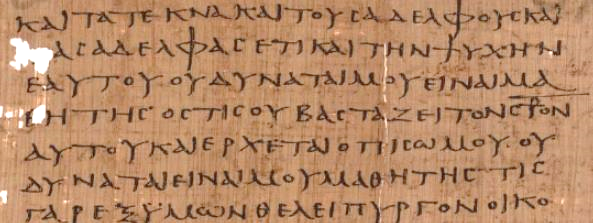 ΚΑΙ ΤΑ ΤΕΚΝΑ ΚΑΙ ΤΟΥϹ ΑΔΕΛΦΟΥϹ ΚΑΙ
ΑϹ ΑΔΕΛΦΑϹ ΕΤΙ ΚΑΙ ΤΗΝ ΨΥΧΗΝ
ΕΑΥΤΟΥ ΟΥ ΔΥΝΑΤΑΙ ΜΟΥ ΕΙΝΑΙ ΜΑ
ΘΗΤΗϹ· ΟϹΤΙϹ ΟΥ ΒΑϹΤΑΖΕΙ ΤΟΝ Ϲ⳨ΟΝ
ΑΥΤΟΥ ΚΑΙ ΕΡΧΕΤΑΙ ΟΠΙϹΩ ΜΟΥ· ΟΥ
ΔΥΝΑΤΑΙ ΕΙΝΑΙ ΜΟΥ ΜΑΘΗΤΗϹ· ΤΙϹ
ΓΑΡ ΕΞ ΥΜΩΝ ΘΕΛΕΙ ΠΥΡΓΟΝ ΟΙΚΟ